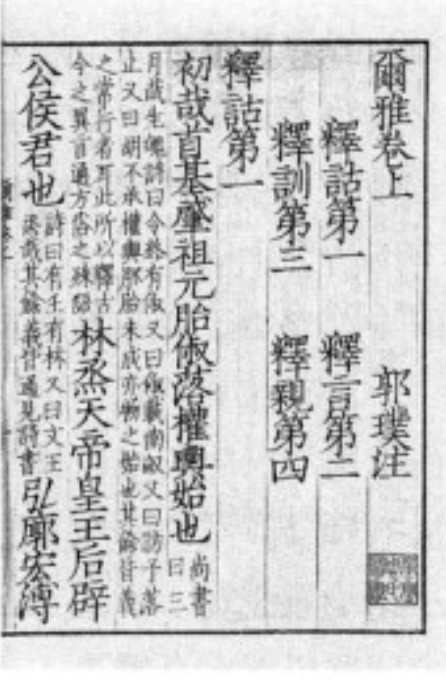 爾雅卷上 郭璞注
釋詁第一 釋言第二
釋訓第三 釋親第四
釋詁第一
初哉首基肇祖元胎俶落權輿始也 尚書曰三
月哉生魄詩曰令終有俶又曰俶載南畝又曰訪予落
止又曰胡不承權輿胚胎未成亦物之始也其餘皆義
之常行者耳此所以釋古今之異言通方俗之殊語 林烝天帝皇王后辟
公侯君也 詩曰有壬有林又曰文王烝哉其餘義皆通見詩書 弘廓宏溥